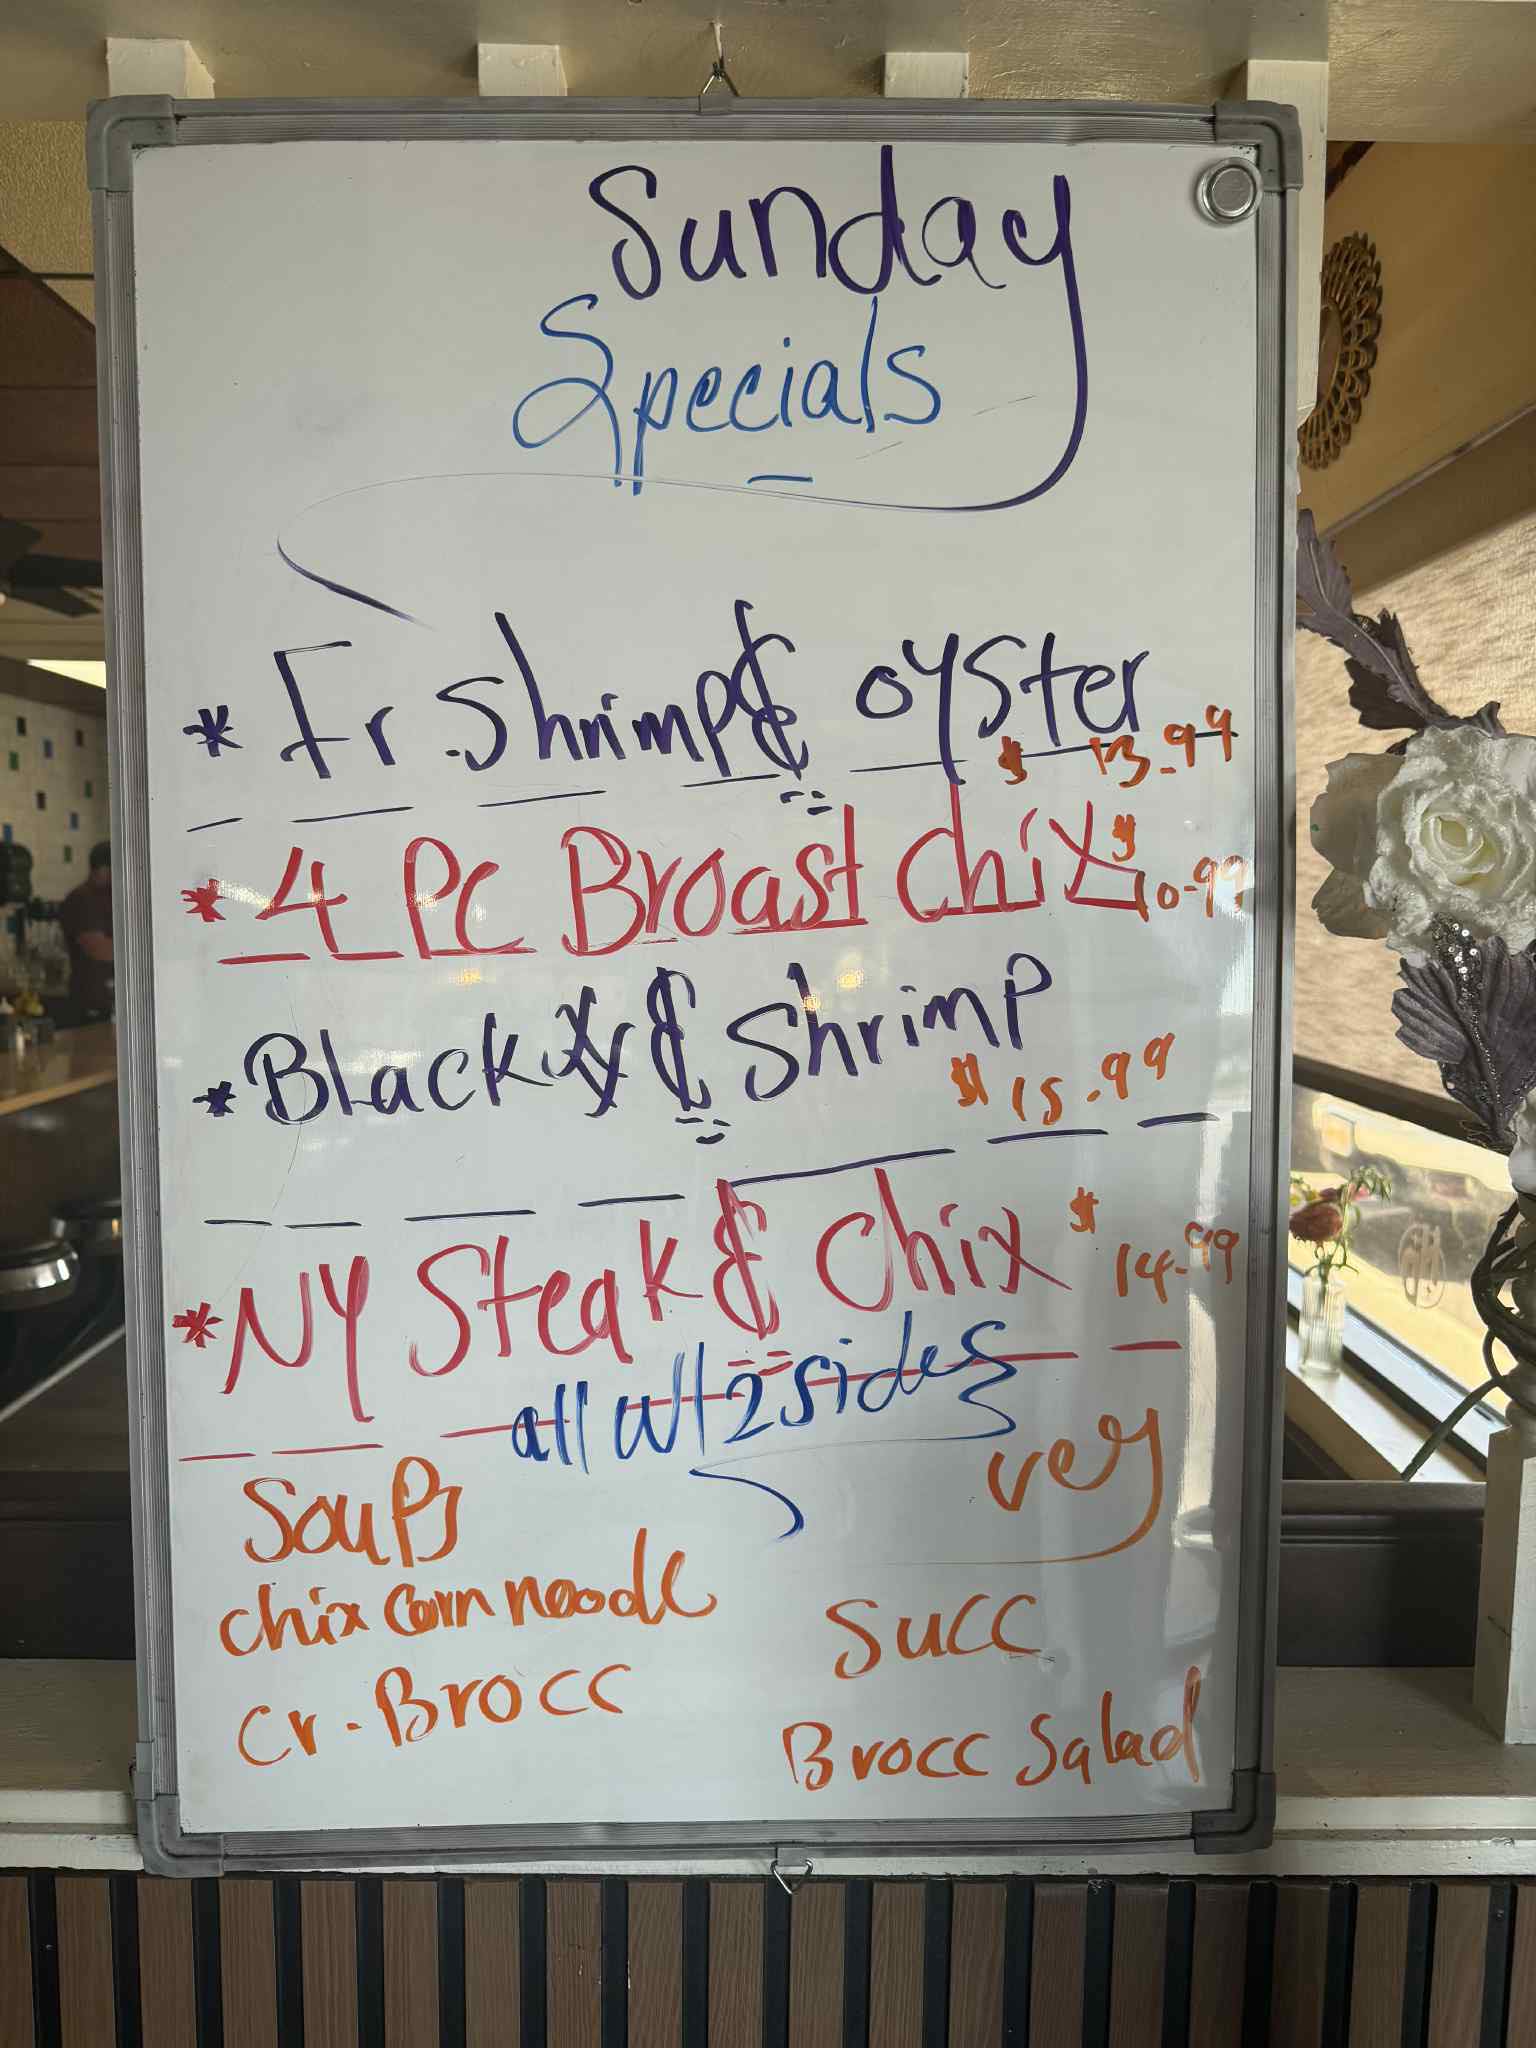 Sunday
Specials
* Fr. Shrimp & oyster
$ 13.99
* 4 Pc Broast Chix $ 10.99
* Black & Shrimp
$ 15.99
* NY Steak & Chix $ 14.99
all w/ 2 sides
Soups
veg
chix corn noodle
Succ
Cr. Brocc
Brocc Salad